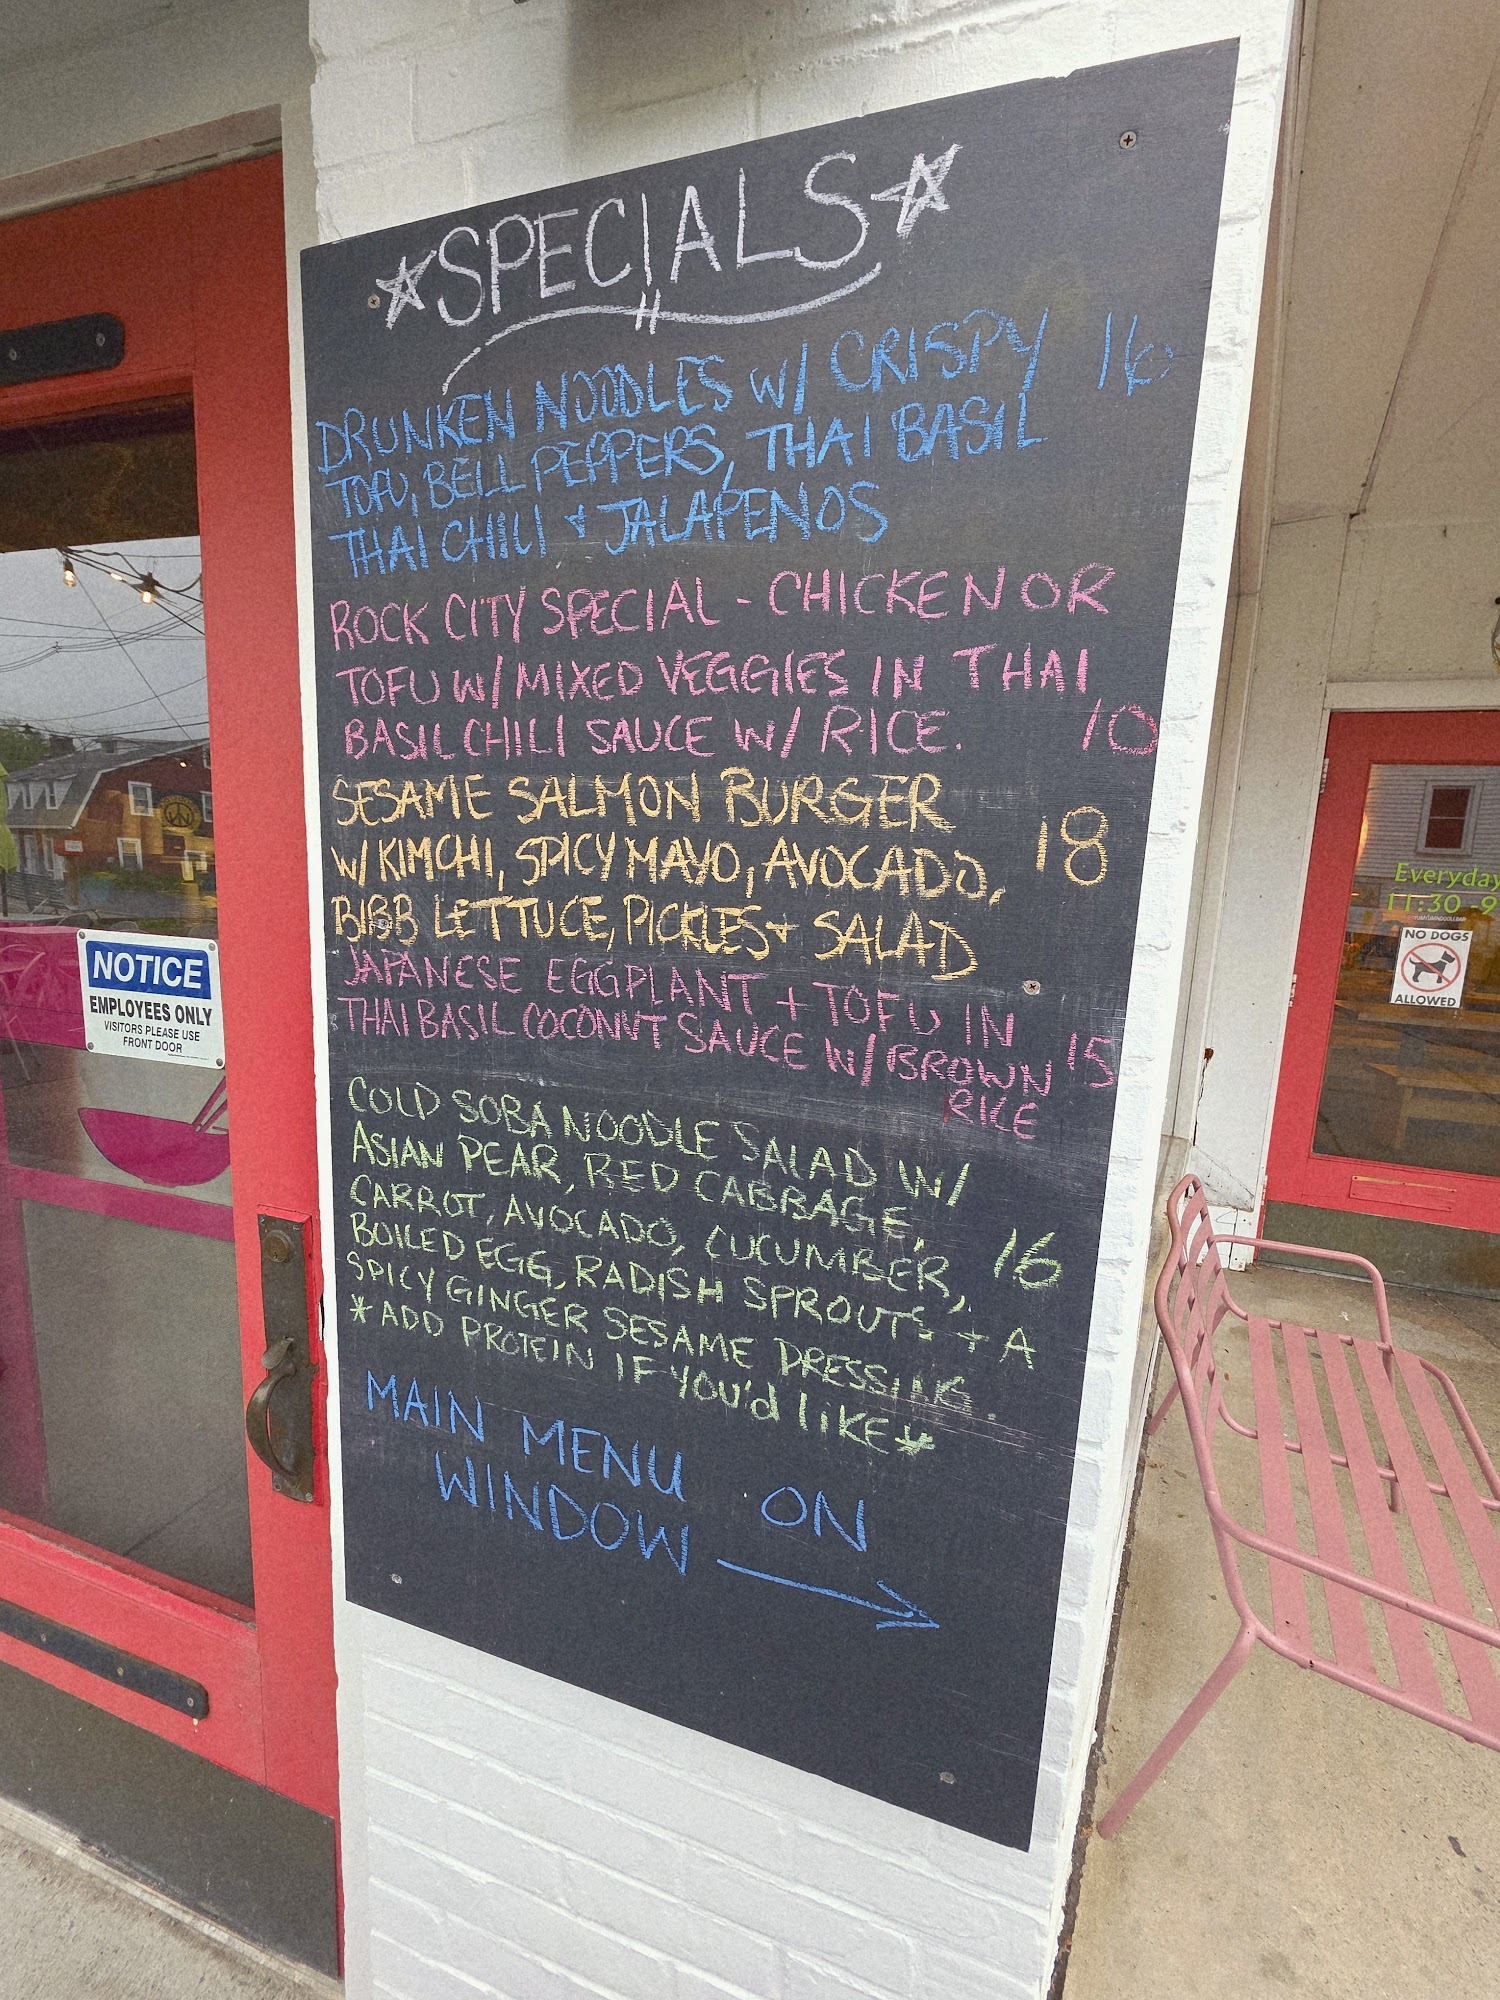 SPECIALS
DRUNKEN NOODLES W/ CRISPY 16
TOFU, BELL PEPPERS, THAI BASIL
THAI CHILI + JALAPENOS
ROCK CITY SPECIAL - CHICKEN OR
TOFU W/ MIXED VEGGIES IN THAI
BASIL CHILI SAUCE W/ RICE. 10
SESAME SALMON BURGER
W/ KIMCHI, SPICY MAYO, AVOCADO, 18
BIBB LETTUCE, PICKLES + SALAD
JAPANESE EGGPLANT + TOFU IN
THAI BASIL COCONUT SAUCE W/ BROWN 15
RICE
COLD SOBA NOODLE SALAD W/
ASIAN PEAR, RED CABBAGE,
CARROT, AVOCADO, CUCUMBER, 16
BOILED EGG, RADISH SPROUTS + A
SPICY GINGER SESAME DRESSING.
*ADD PROTEIN IF YOU'd liKE*
MAIN MENU ON
WINDOW
NOTICE
EMPLOYEES ONLY
VISITORS PLEASE USE
FRONT DOOR
Everyday
11:30 - 9
NO DOGS
ALLOWED